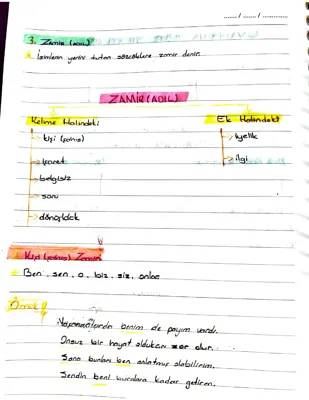 ....../....../......
3. Zamir (adıl)
İsimlerin yerini tutan sözcüklere zamir denir.
ZAMİR (ADIL)
Kelime Halindeki
Ek Halindeki
kişi (şahıs)
işaret
belgisiz
soru
dönüşlülük
iyelik
ilgi
Kişi (şahıs) Zamiri
Ben, sen, o, biz, siz, onlar
Örnek
benim de payım vardı.
Onsuz bir hayat oldukça zor olur.
Sana bunları ben anlatmış olabilirim.
Sendin beni buralara kadar getiren.